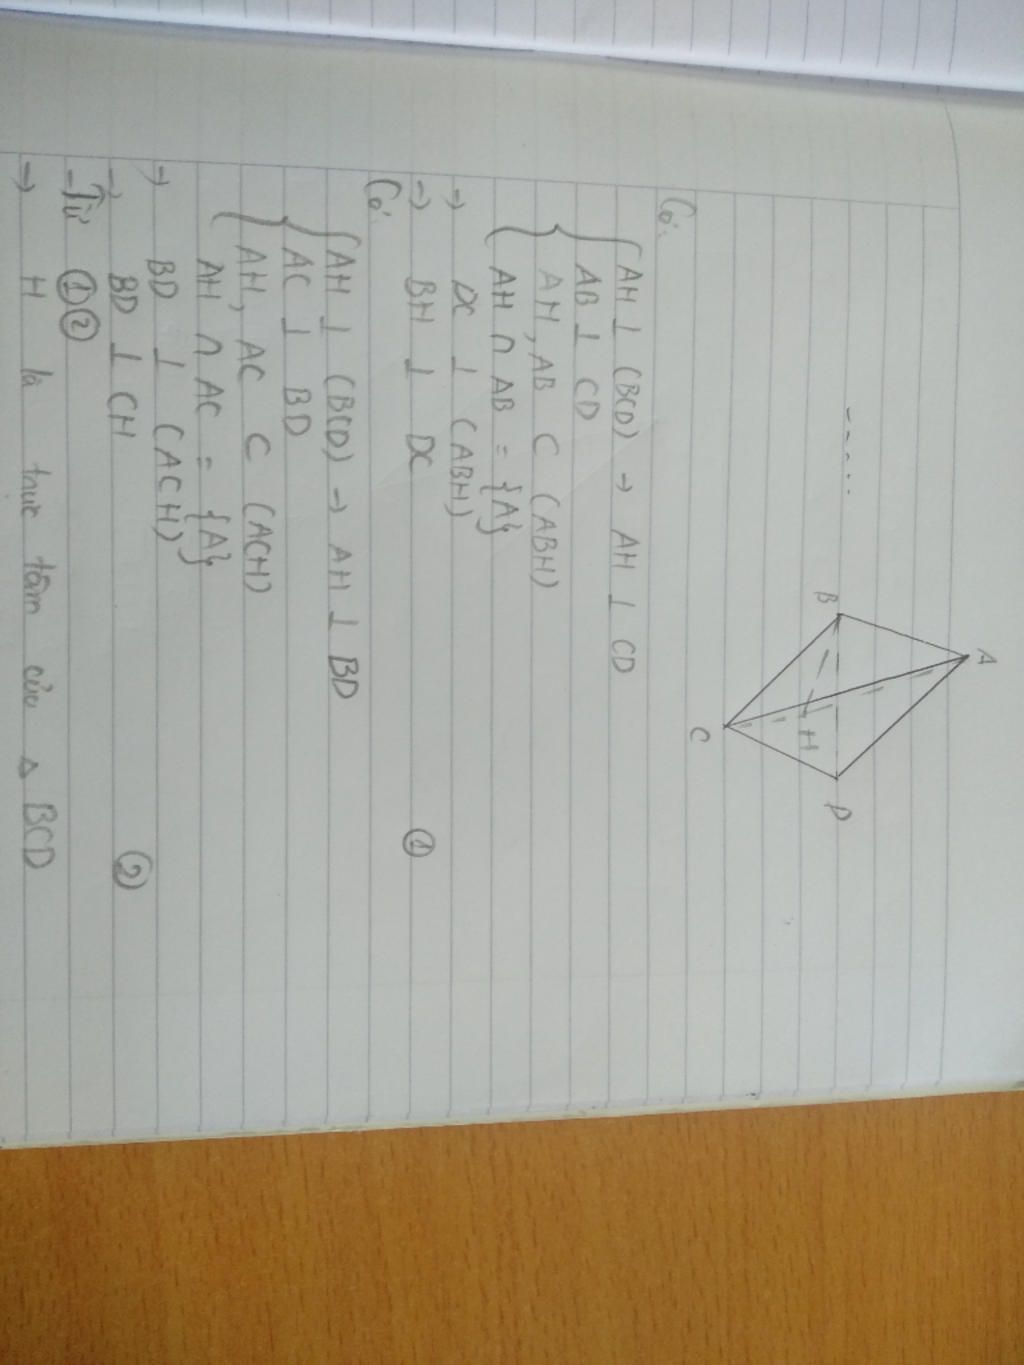 A
B
D
H
C
Có:
AH ⊥ (BCD) → AH ⊥ CD
AB ⊥ CD
AH, AB ⊂ (ABH)
AH ∩ AB = {A}
→ DC ⊥ (ABH)
→ BH ⊥ DC ①
Có:
AH ⊥ (BCD) → AH ⊥ BD
AC ⊥ BD
AH, AC ⊂ (ACH)
AH ∩ AC = {A}
→ BD ⊥ (ACH)
→ BD ⊥ CH ②
- Từ ①②
→ H là trực tâm của △ BCD